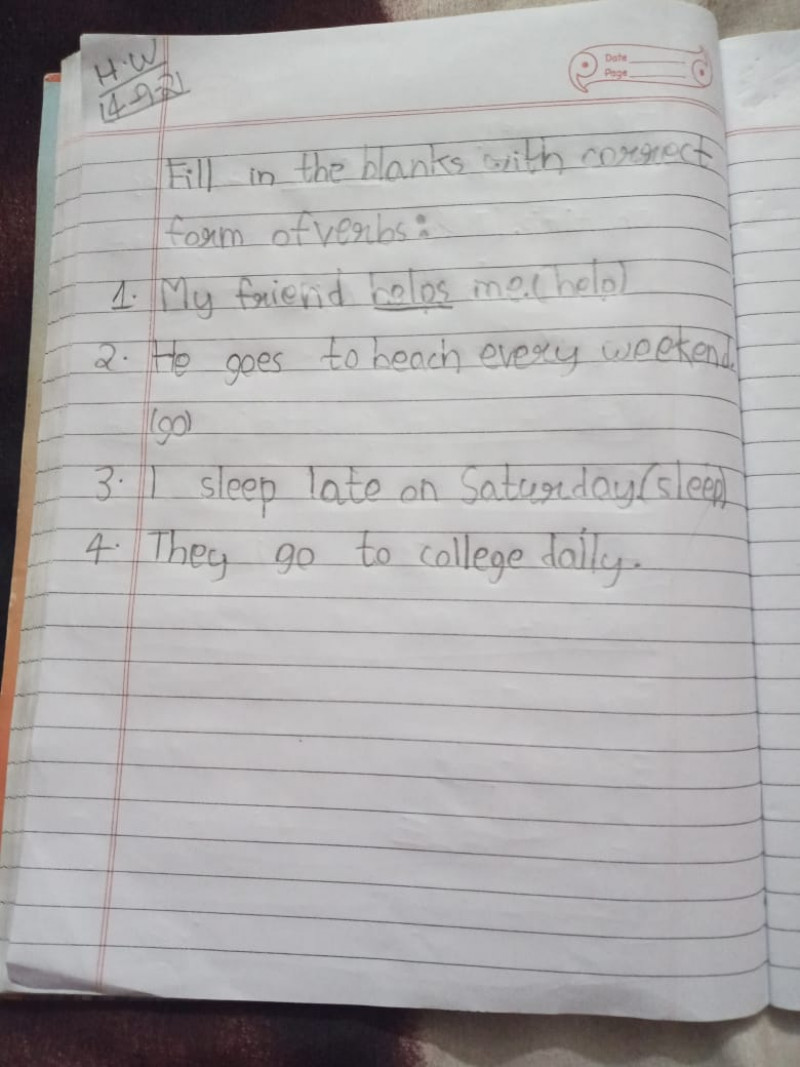 H.W
14-9-21
Date
Page
Fill in the blanks with correct
form of verbs:
1. My friend helps me.(help)
2. He goes to beach every weekend.
(go)
3. I sleep late on Saturday.(sleep)
4. They go to college daily.